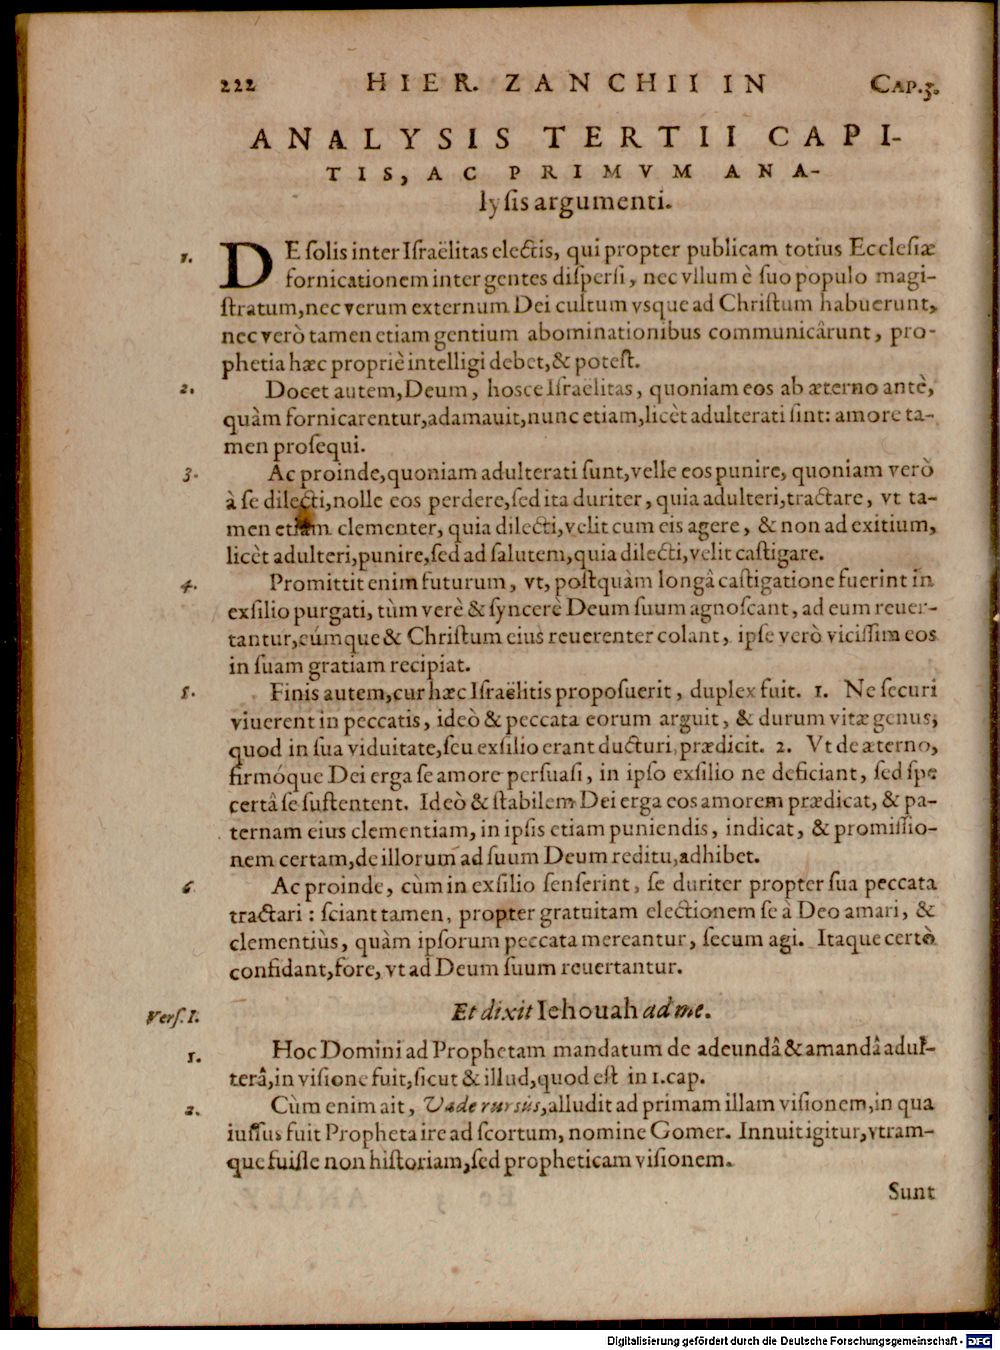 222 HIER. ZANCHII IN CAP.3.
ANALYSIS TERTII CAPI-
TIS, AC PRIMVM ANA-
lysis argumenti.
1. DE solis inter Israëlitas electis, qui propter publicam totius Ecclesiæ
fornicationem inter gentes dispersi, nec vllum è suo populo magi-
stratum, nec verum externum Dei cultum vsque ad Christum habuerunt,
nec verò tamen etiam gentium abominationibus communicârunt, pro-
phetia hæc propriè intelligi debet, & potest.
2. Docet autem, Deum, hosce Israëlitas, quoniam eos ab æterno antè,
quàm fornicarentur, adamauit, nunc etiam, licèt adulterati sint: amore ta-
men prosequi.
3. Ac proinde, quoniam adulterati sunt, velle eos punire, quoniam verò
à se dilecti, nolle eos perdere, sed ita duriter, quia adulteri, tractare, vt ta-
men etiam clementer, quia dilecti, velit cum eis agere, & non ad exitium,
licèt adulteri, punire, sed ad salutem, quia dilecti, velit castigare.
4. Promittit enim futurum, vt, postquàm longâ castigatione fuerint in
exsilio purgati, tùm verè & syncerè Deum suum agnoscant, ad eum reuer-
tantur, eúmque & Christum eius reuerenter colant, ipse verò vicissim eos
in suam gratiam recipiat.
5. Finis autem, cur hæc Israëlitis proposuerit, duplex fuit. 1. Ne securi
viuerent in peccatis, ideò & peccata eorum arguit, & durum vitæ genus,
quod in sua viduitate, seu exsilio erant ducturi, prædicit. 2. Vt de æterno,
firmóque Dei erga se amore persuasi, in ipso exsilio ne deficiant, sed spe
certâ se sustentent. Ideò & stabilem Dei erga eos amorem prædicat, & pa-
ternam eius clementiam, in ipsis etiam puniendis, indicat, & promissio-
nem certam, de illorum ad suum Deum reditu, adhibet.
6. Ac proinde, cùm in exsilio senserint, se duriter propter sua peccata
tractari: sciant tamen, propter gratuitam electionem se à Deo amari, &
clementiùs, quàm ipsorum peccata mereantur, secum agi. Itaque certò
confidant, fore, vt ad Deum suum reuertantur.
Vers. 1. Et dixit Iehouah ad me.
1. Hoc Domini ad Prophetam mandatum de adeundâ & amandâ adul-
terâ, in visione fuit, sicut & illud, quod est in 1. cap.
2. Cùm enim ait, Vade rursùs, alludit ad primam illam visionem, in qua
iussus fuit Propheta ire ad scortum, nomine Gomer. Innuit igitur, vtram-
que fuisse non historiam, sed propheticam visionem.
Sunt
Digitalisierung gefördert durch die Deutsche Forschungsgemeinschaft - DFG